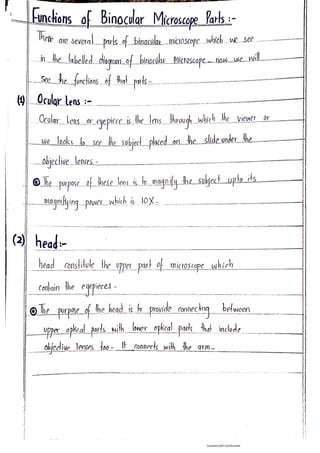 Functions of Binocular Microscope Parts :-
There are several parts of binocular microscope which we see
in the labelled diagram of binocular Microscope. now we will
see the functions of that parts.
(1) Ocular Lens :-
Ocular Lens or eyepiece is the lens through which the viewer or
we looks to see the subject placed on the slide under the
objective lenses.
The purpose of these lens is to magnify the subject upto its
magnifying power which is 10X.
(2) head:-
head constitute the upper part of microscope which
contain the eyepieces.
The purpose of the head is to provide connecting between
upper optical parts with lower optical parts that include
objective lenses too. It connects with the arm.
Scanned with CamScanner